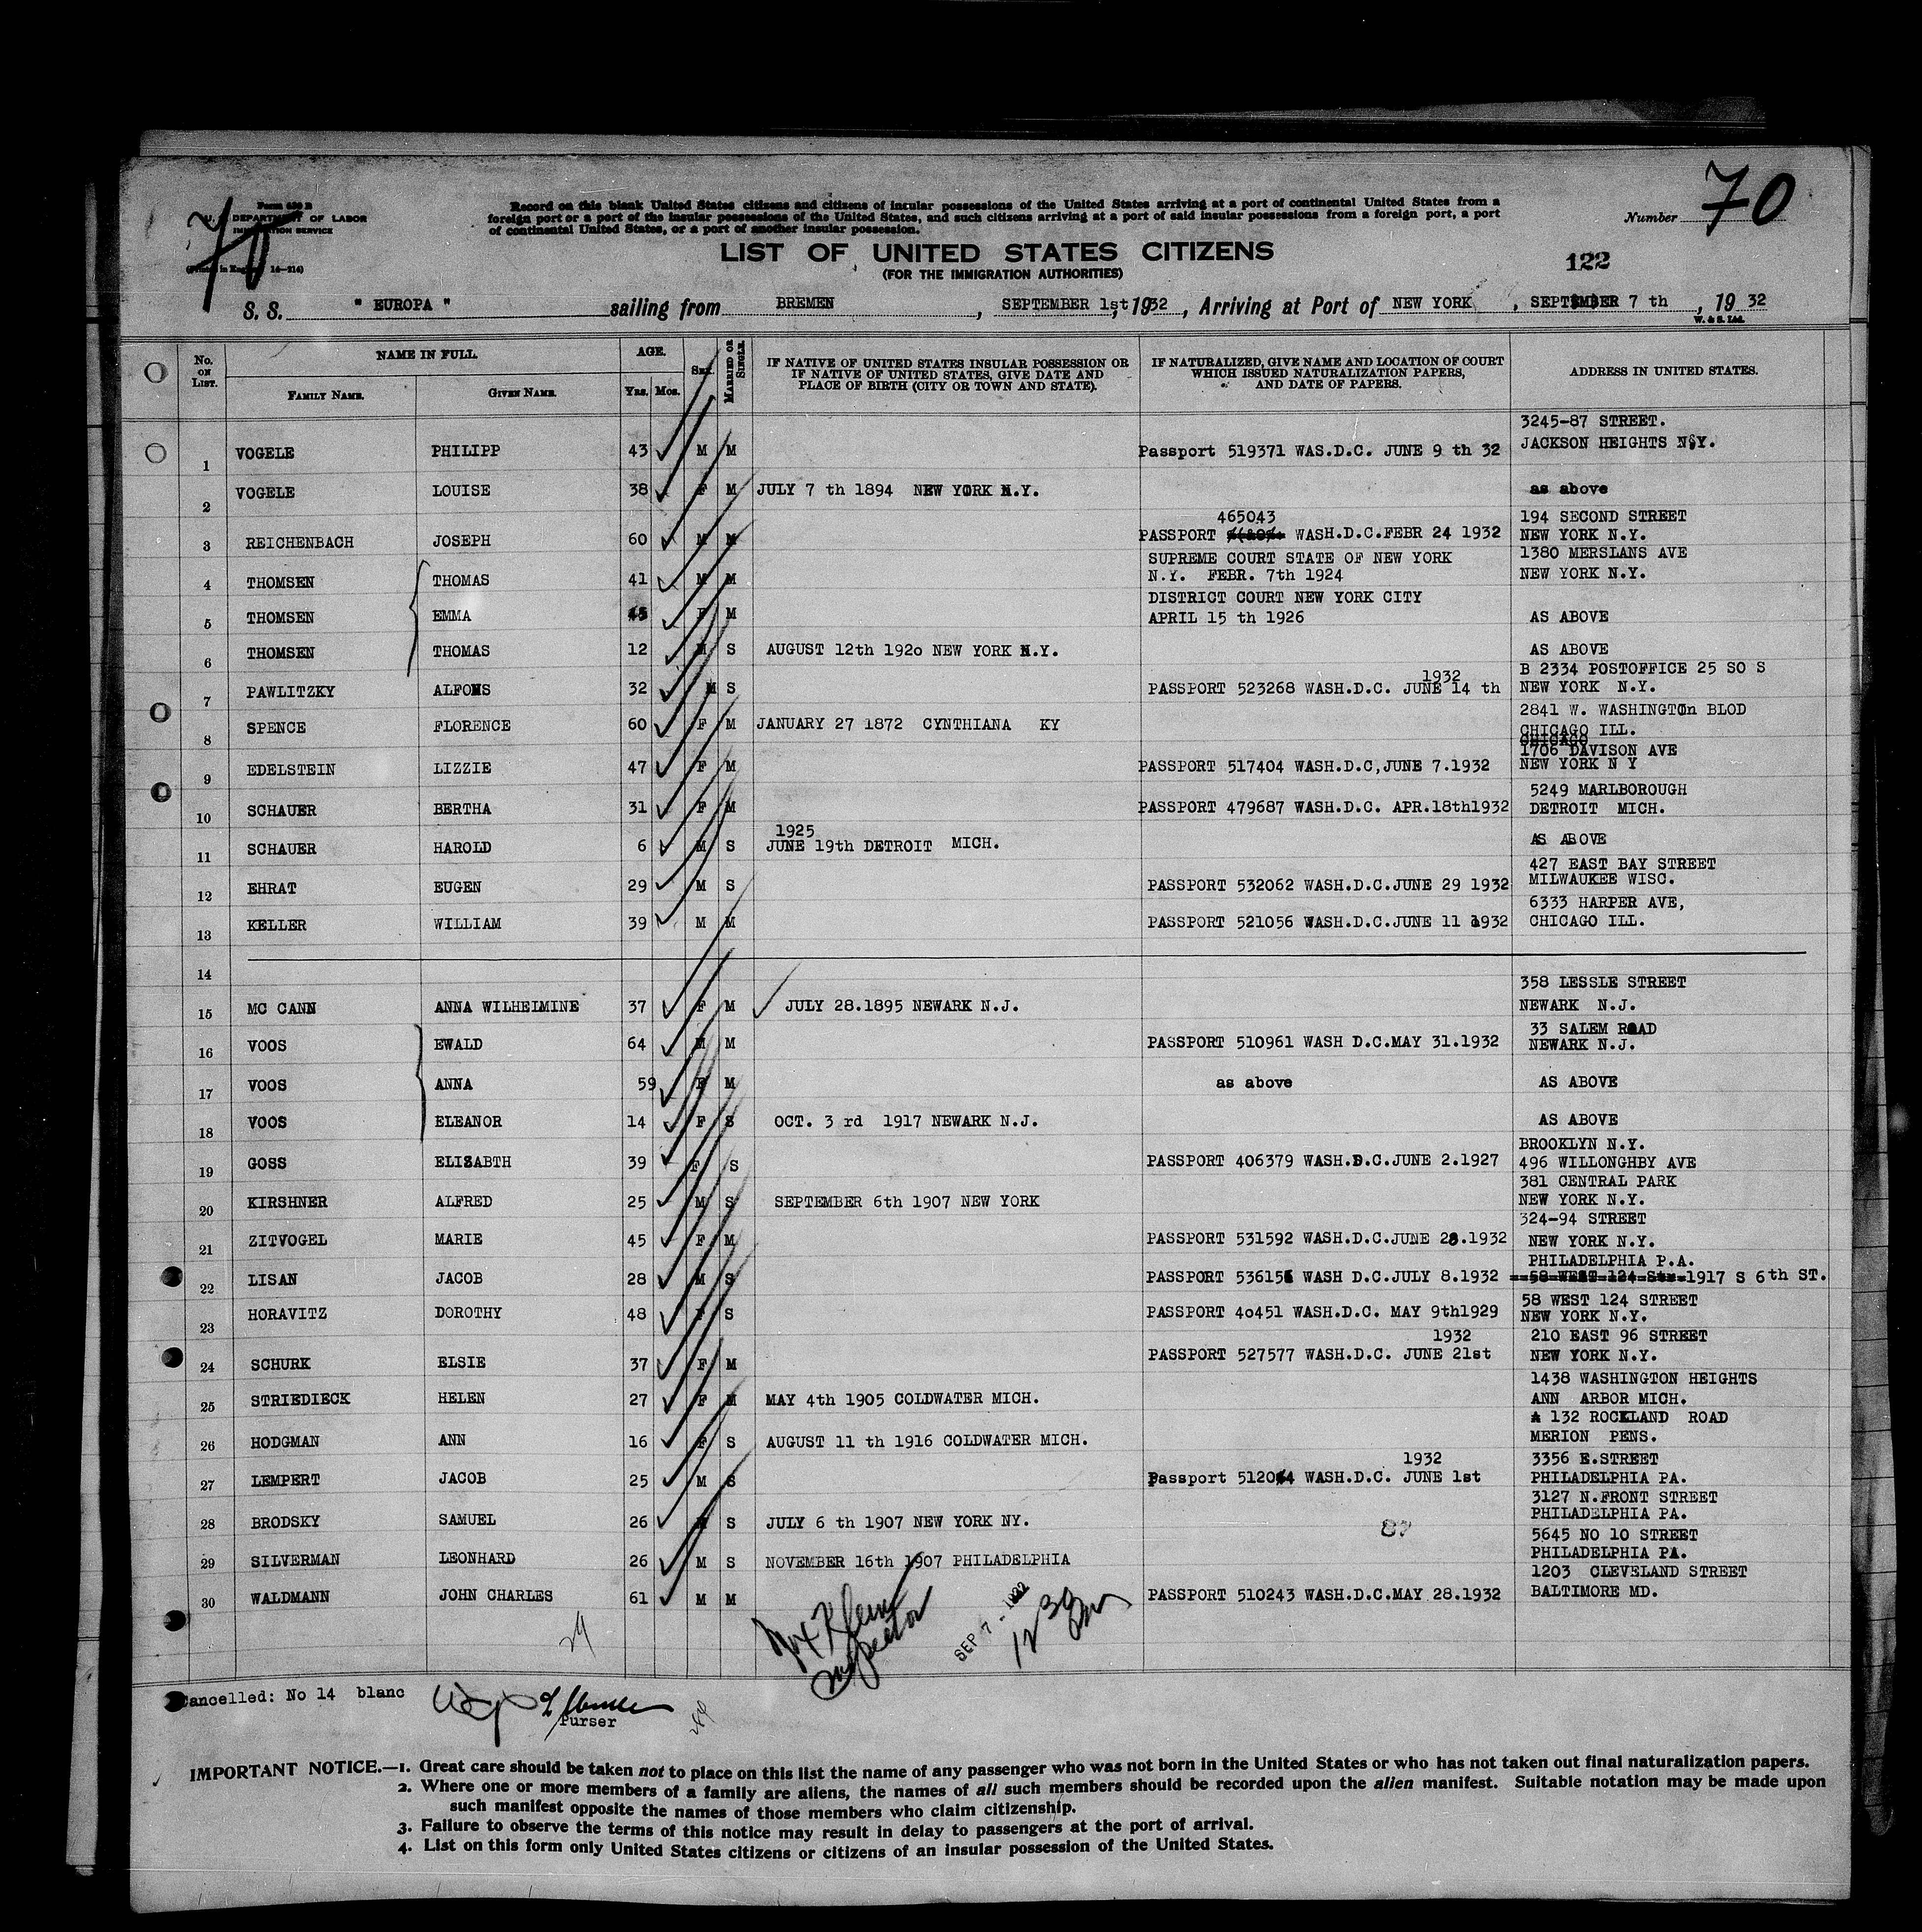 70
Form 630 B
U. S. DEPARTMENT OF LABOR
IMMIGRATION SERVICE
(Printed in England 14—214)
Record on this blank United States citizens and citizens of insular possessions of the United States arriving at a port of continental United States from a
foreign port or a port of the insular possessions of the United States, and such citizens arriving at a port of said insular possessions from a foreign port, a port
of continental United States, or a port of another insular possession.
Number 70
LIST OF UNITED STATES CITIZENS
(FOR THE IMMIGRATION AUTHORITIES)
122
S. S. " EUROPA " sailing from BREMEN , SEPTEMBER 1st, 1932 , Arriving at Port of NEW YORK , SEPTEMBER 7 th , 19 32
W. & S. Ltd.
No. ON LIST. NAME IN FULL AGE. SEX. MARRIED OR SINGLE. IF NATIVE OF UNITED STATES INSULAR POSSESSION OR IF NATIVE OF UNITED STATES, GIVE DATE AND PLACE OF BIRTH (CITY OR TOWN AND STATE). IF NATURALIZED, GIVE NAME AND LOCATION OF COURT WHICH ISSUED NATURALIZATION PAPERS, AND DATE OF PAPERS. ADDRESS IN UNITED STATES.
FAMILY NAME. GIVEN NAME. YRS. MOS.
3245-87 STREET.
1 VOGELE PHILIPP 43 M M Passport 519371 WAS.D.C. JUNE 9 th 32 JACKSON HEIGHTS N.Y.
2 VOGELE LOUISE 38 F M JULY 7 th 1894 NEW YORK N.Y. as above
465043 194 SECOND STREET
3 REICHENBACH JOSEPH 60 M M PASSPORT WASH.D.C.FEBR 24 1932 NEW YORK N.Y.
SUPREME COURT STATE OF NEW YORK 1380 MERSLANS AVE
4 THOMSEN THOMAS 41 M M N.Y. FEBR. 7th 1924 NEW YORK N.Y.
DISTRICT COURT NEW YORK CITY
5 THOMSEN EMMA 45 F M APRIL 15 th 1926 AS ABOVE
6 THOMSEN THOMAS 12 M S AUGUST 12th 192o NEW YORK N.Y. AS ABOVE
1932 B 2334 POSTOFFICE 25 SO S
7 PAWLITZKY ALFONS 32 M S PASSPORT 523268 WASH.D.C. JUNE 14 th NEW YORK N.Y.
2841 W. WASHINGTOn BLOD
8 SPENCE FLORENCE 60 F M JANUARY 27 1872 CYNTHIANA KY CHICAGO ILL.
CHICAGO
1706 DAVISON AVE
9 EDELSTEIN LIZZIE 47 F M PASSPORT 517404 WASH.D.C,JUNE 7.1932 NEW YORK N Y
5249 MARLBOROUGH
10 SCHAUER BERTHA 31 F M PASSPORT 479687 WASH.D.C. APR.18th1932 DETROIT MICH.
1925
11 SCHAUER HAROLD 6 M S JUNE 19th DETROIT MICH. AS ABOVE
427 EAST BAY STREET
12 EHRAT EUGEN 29 M S PASSPORT 532062 WASH.D.C.JUNE 29 1932 MILWAUKEE WISC.
6333 HARPER AVE,
13 KELLER WILLIAM 39 M M PASSPORT 521056 WASH.D.C.JUNE 11 1932 CHICAGO ILL.
14
358 LESSLE STREET
15 MC CANN ANNA WILHELMINE 37 F M JULY 28.1895 NEWARK N.J. NEWARK N.J.
33 SALEM ROAD
16 VOOS EWALD 64 M M PASSPORT 510961 WASH D.C.MAY 31.1932 NEWARK N.J.
17 VOOS ANNA 59 F M as above AS ABOVE
18 VOOS ELEANOR 14 F S OCT. 3 rd 1917 NEWARK N.J. AS ABOVE
BROOKLYN N.Y.
19 GOSS ELISABTH 39 F S PASSPORT 406379 WASH.D.C.JUNE 2.1927 496 WILLONGHBY AVE
381 CENTRAL PARK
20 KIRSHNER ALFRED 25 M S SEPTEMBER 6th 1907 NEW YORK NEW YORK N.Y.
324-94 STREET
21 ZITVOGEL MARIE 45 F M PASSPORT 531592 WASH.D.C.JUNE 28.1932 NEW YORK N.Y.
PHILADELPHIA P.A.
22 LISAN JACOB 28 M S PASSPORT 53615 WASH D.C.JULY 8.1932 58 WEST 124 Str 1917 S 6th ST.
58 WEST 124 STREET
23 HORAVITZ DOROTHY 48 F S PASSPORT 4o451 WASH.D.C. MAY 9th1929 NEW YORK N.Y.
1932 210 EAST 96 STREET
24 SCHURK ELSIE 37 F M PASSPORT 527577 WASH.D.C. JUNE 21st NEW YORK N.Y.
1438 WASHINGTON HEIGHTS
25 STRIEDIECK HELEN 27 F M MAY 4th 1905 COLDWATER MICH. ANN ARBOR MICH.
132 ROCKLAND ROAD
26 HODGMAN ANN 16 F S AUGUST 11 th 1916 COLDWATER MICH. MERION PENS.
1932 3356 E.STREET
27 LEMPERT JACOB 25 M S Passport WASH.D.C. JUNE 1st PHILADELPHIA PA.
3127 N.FRONT STREET
28 BRODSKY SAMUEL 26 M S JULY 6 th 1907 NEW YORK NY. PHILADELPHIA PA.
87 5645 NO 10 STREET
29 SILVERMAN LEONHARD 26 M S NOVEMBER 16th 1907 PHILADELPHIA PHILADELPHIA PA.
1203 CLEVELAND STREET
30 WALDMANN JOHN CHARLES 61 M M PASSPORT 510243 WASH.D.C.MAY 28.1932 BALTIMORE MD.
29
Klein
Inspector
SEP 7 - 1932
12 30
Cancelled: No 14 blanc
Purser
IMPORTANT NOTICE.—1. Great care should be taken not to place on this list the name of any passenger who was not born in the United States or who has not taken out final naturalization papers.
2. Where one or more members of a family are aliens, the names of all such members should be recorded upon the alien manifest. Suitable notation may be made upon
such manifest opposite the names of those members who claim citizenship.
3. Failure to observe the terms of this notice may result in delay to passengers at the port of arrival.
4. List on this form only United States citizens or citizens of an insular possession of the United States.